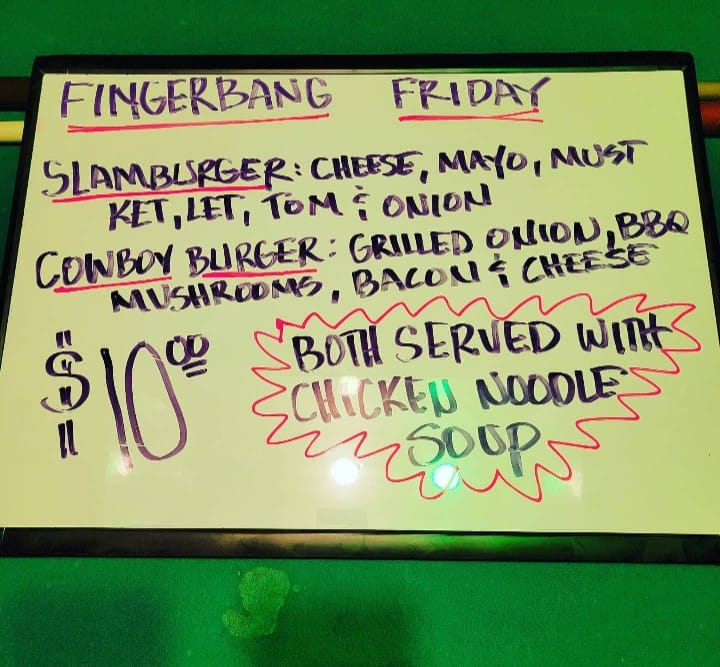 FINGERBANG FRIDAY
SLAMBURGER: CHEESE, MAYO, MUST
KET, LET, TOM & ONION
COWBOY BURGER: GRILLED ONION, BBQ
MUSHROOMS, BACON & CHEESE
$10.00
BOTH SERVED WITH
CHICKEN NOODLE
SOUP